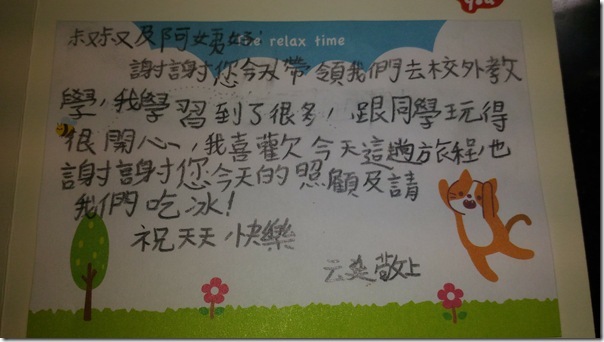 you
the relax time
叔叔及阿姨好:
謝謝您今天帶領我們去校外教
學,我學習到了很多,跟同學玩得
很開心,我喜歡今天這趟旅程,也
謝謝您今天的照顧及請
我們吃冰!
祝天天快樂
敬上